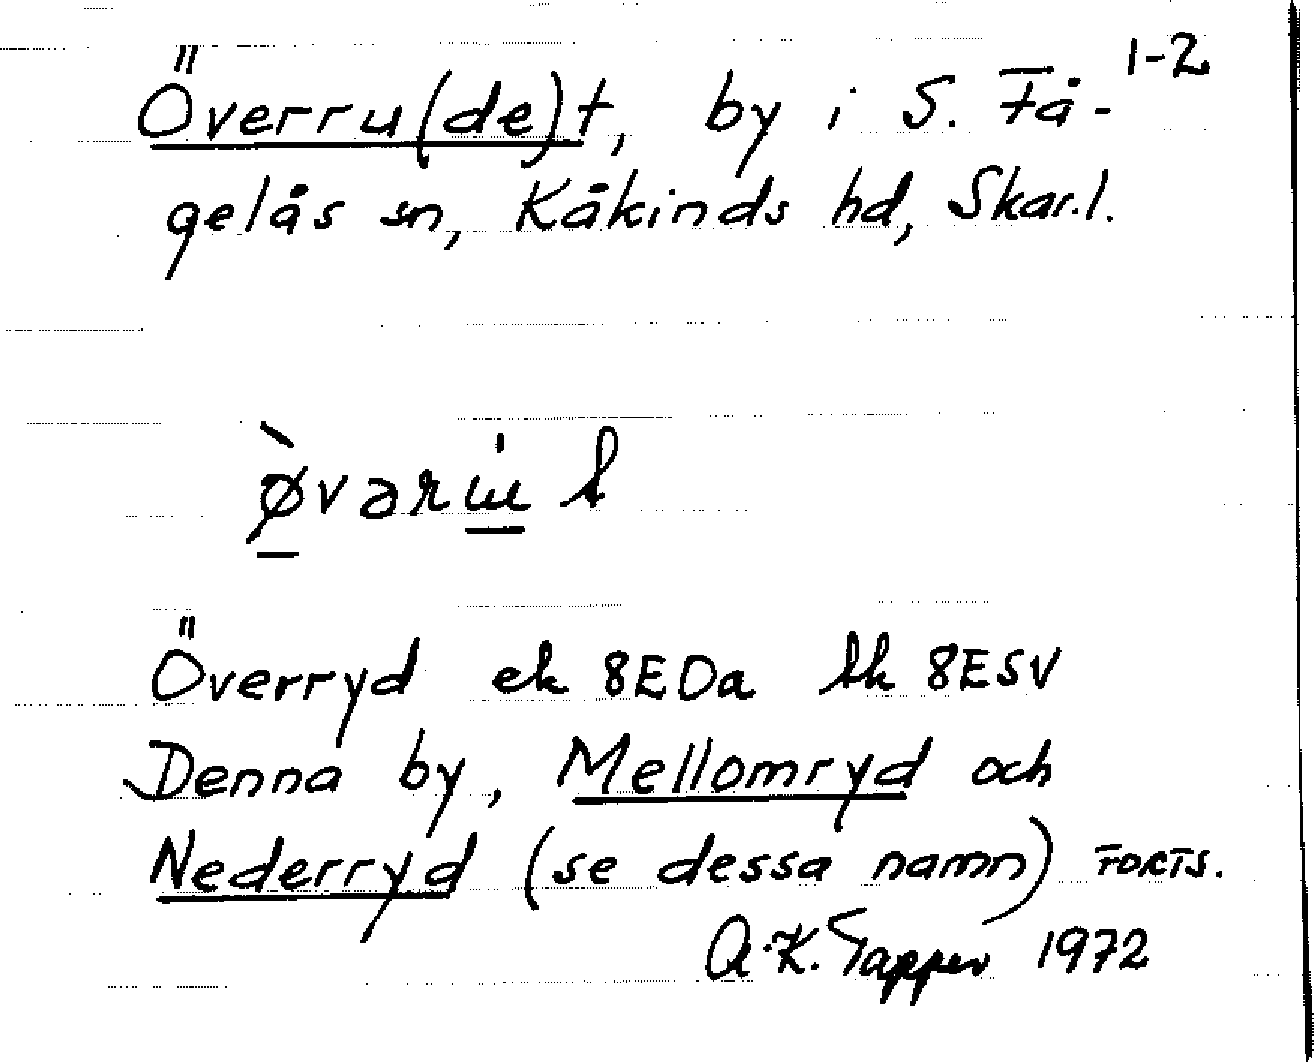 Överru(de)t, by i S. Få- 1-2
gelås sn, Kåkinds hd, Skar.l.
Överryd ek 8EDa lk 8ESV
Denna by, Mellomryd och
Nederryd (se dessa namn) FORTS.
A-K. Tapper 1972